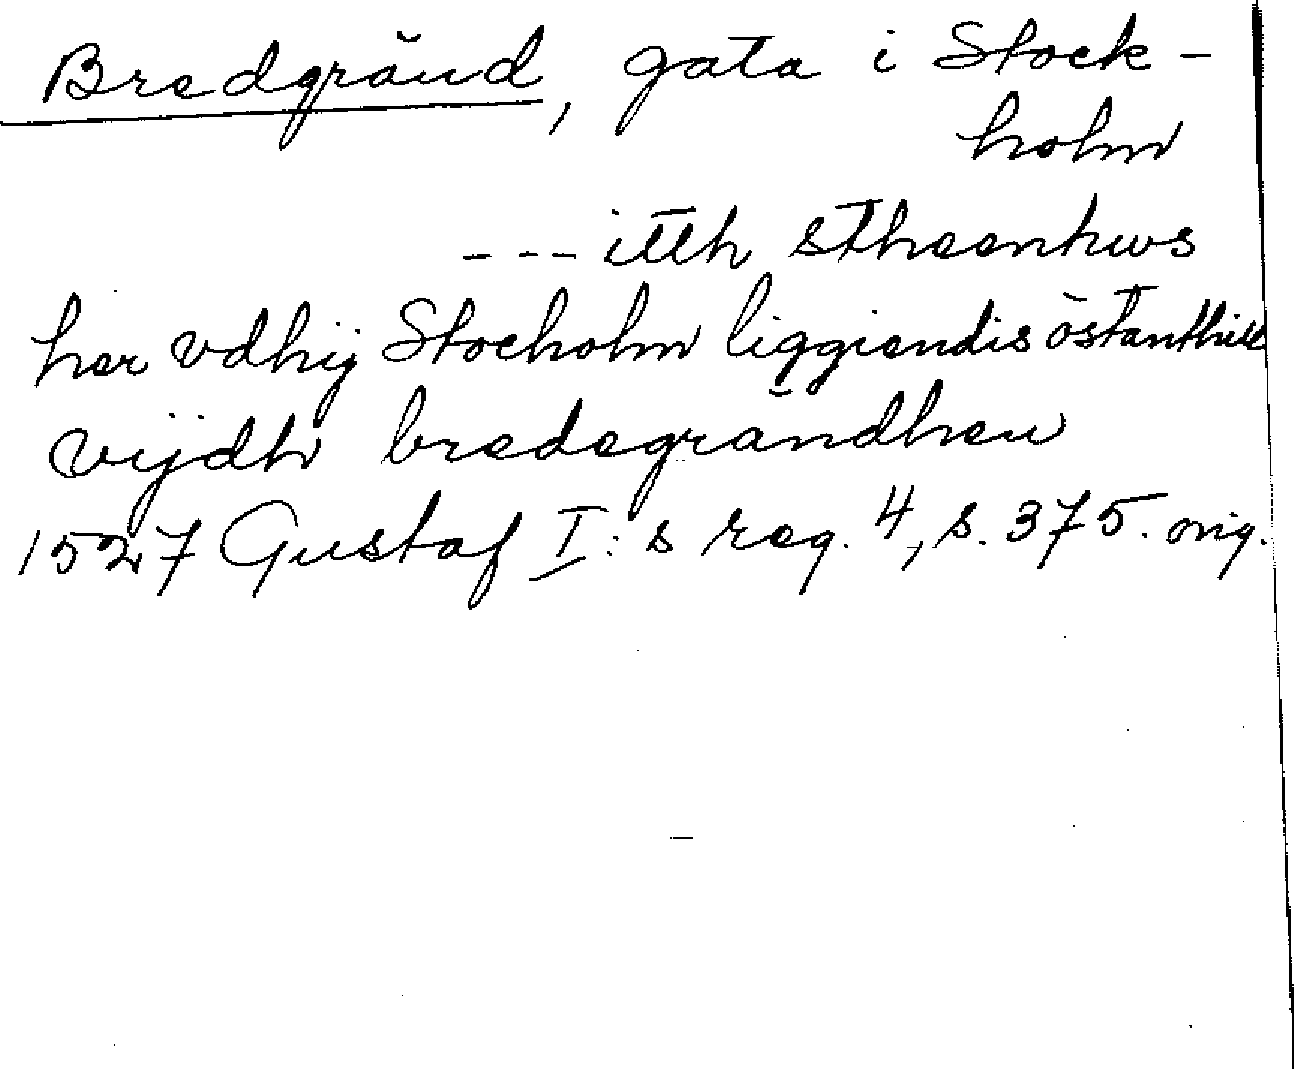 Bredgränd, gata i Stock-
holm
--- itth stheenhws
her vdhij Stocholm liggiendis östanthill
vijdh bredegrändhen
1527 Gustaf I:s reg. 4, s. 375. orig.